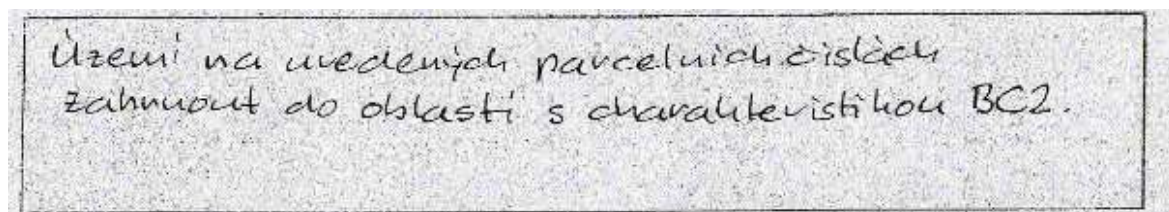 Území na uvedených parcelních číslech
zahrnout do oblastí s charakteristikou BC2.